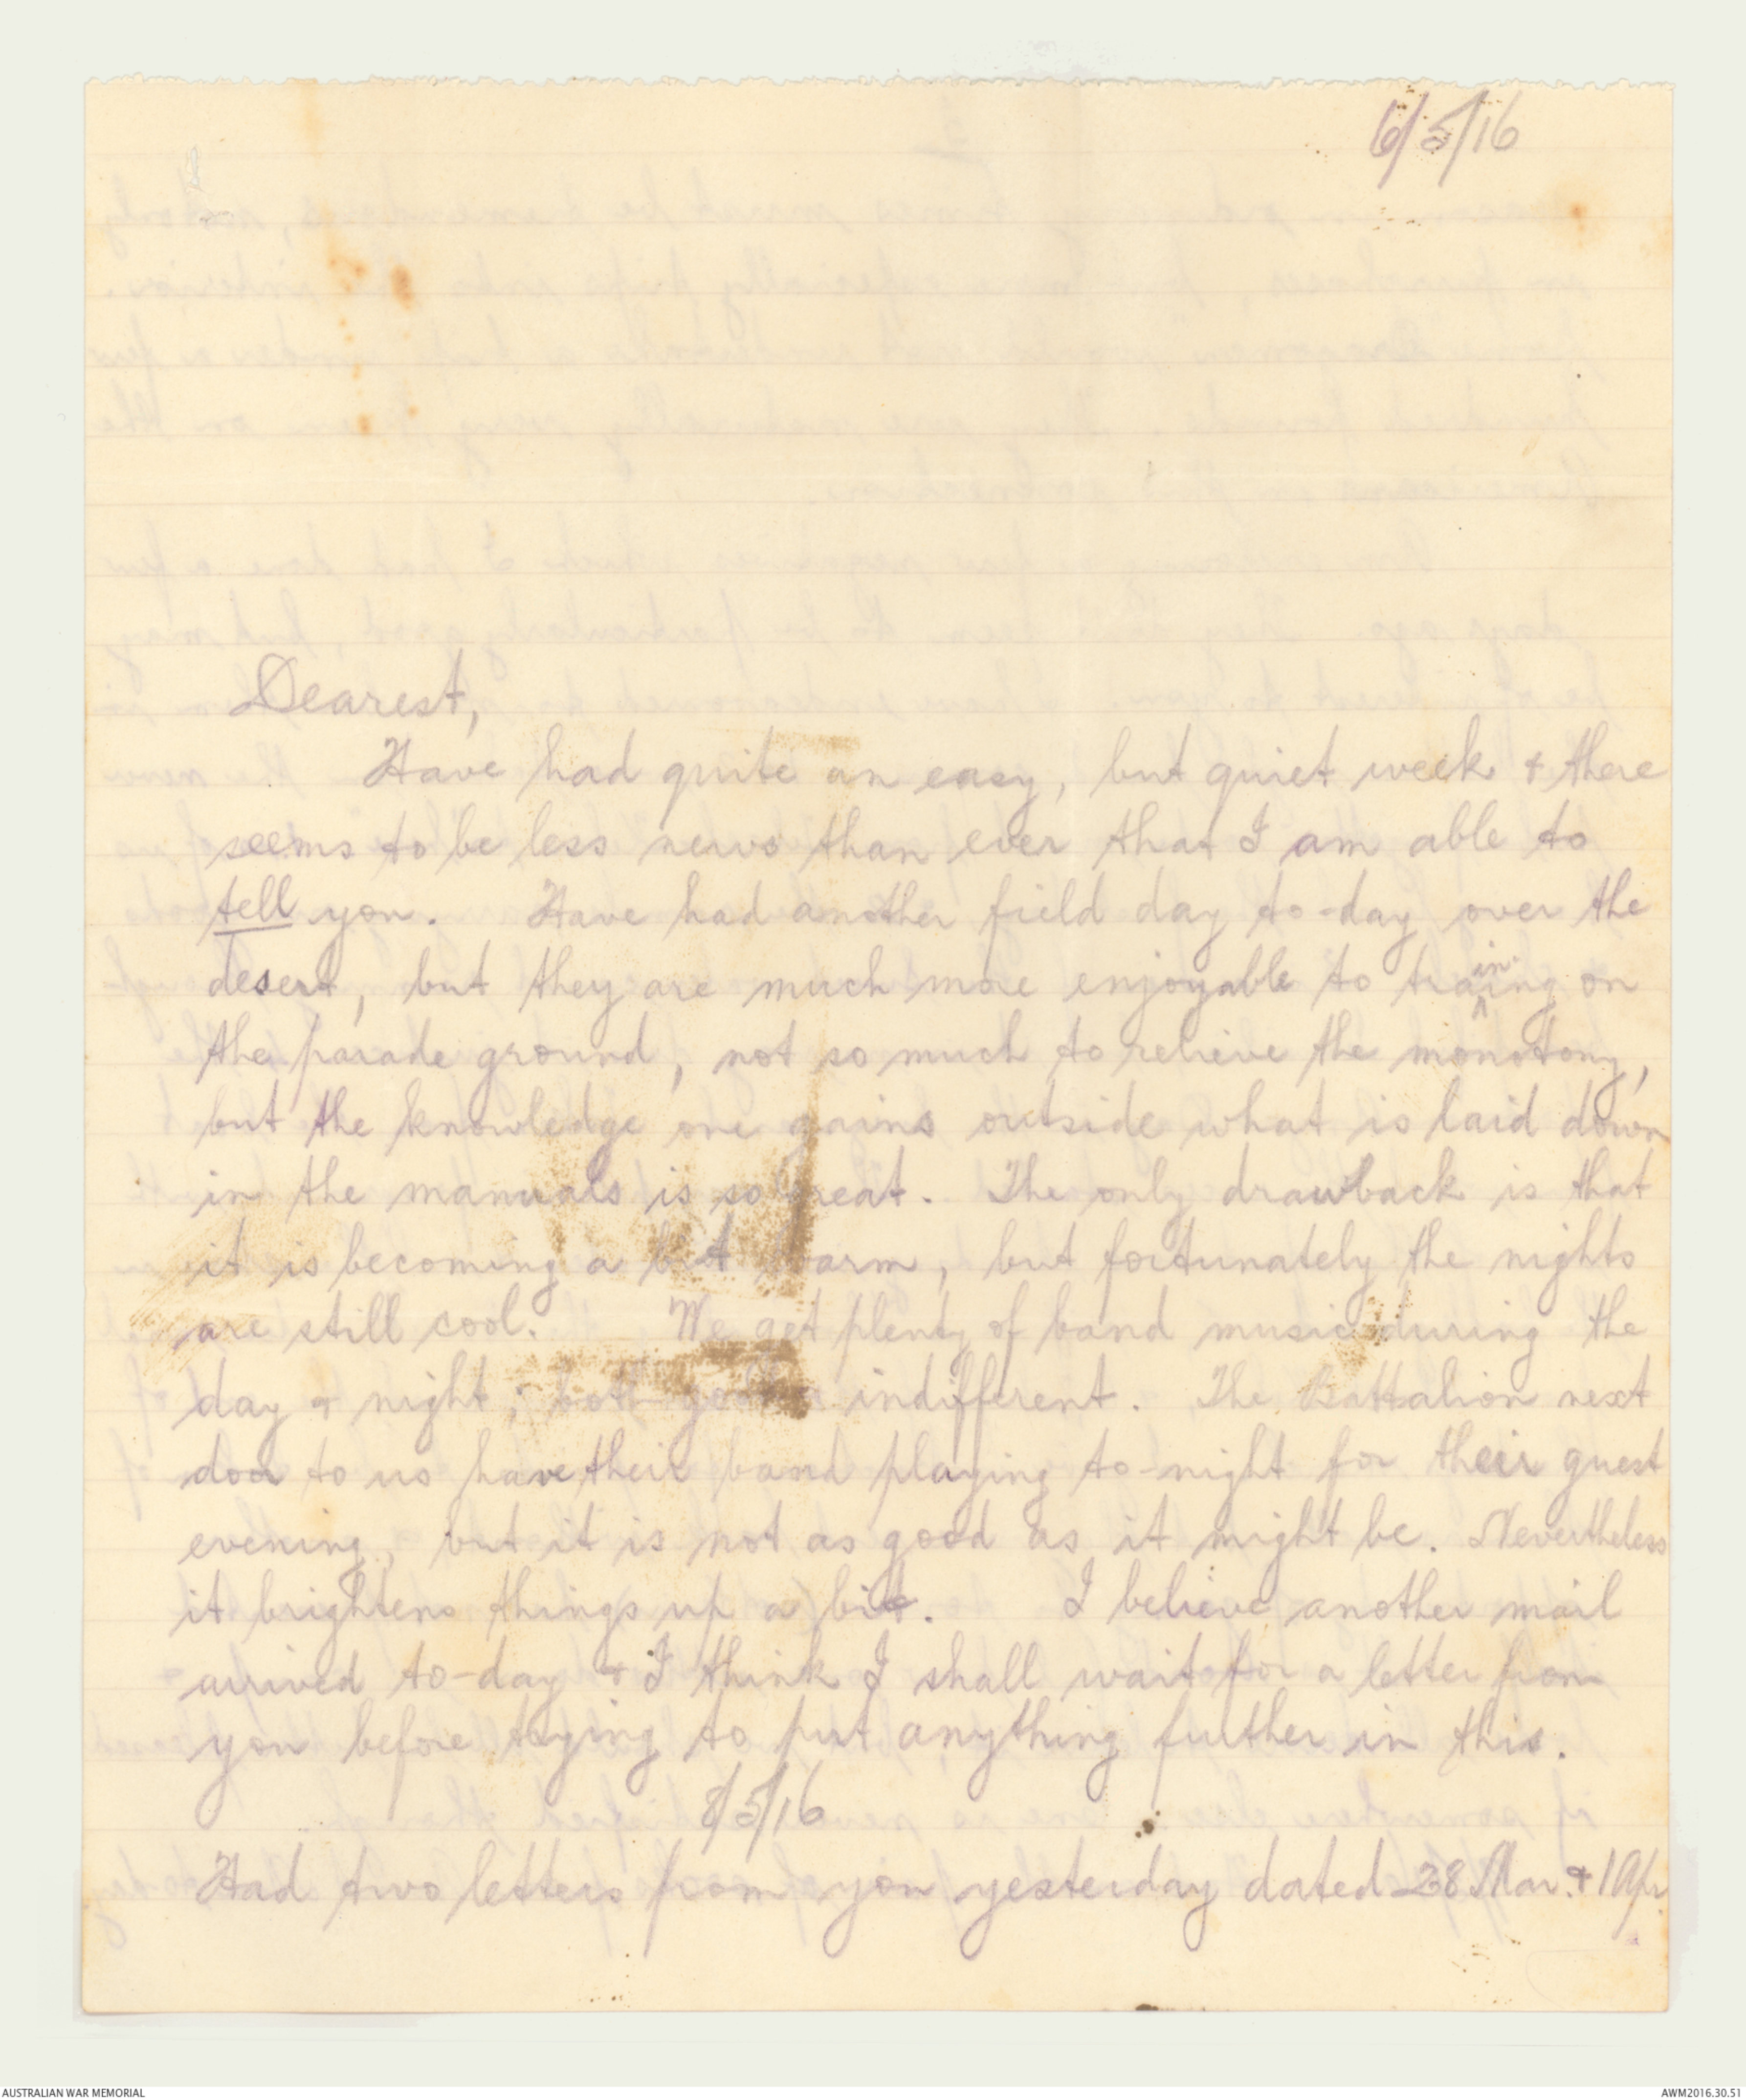 6/5/16
Dearest,
Have had quite an easy, but quiet week & there
seems to be less news than ever that I am able to
tell you. Have had another field day to-day over the
desert, but they are much more enjoyable to training on
the parade ground, not so much to relieve the monotony,
but the knowledge one gains outside what is laid down
in the manuals is so great. The only drawback is that
it is becoming a bit warm, but fortunately the nights
are still cool. We get plenty of band music during the
day & night; both good & indifferent. The Battalion next
door to us have their band playing to-night for their guest
evening, but it is not as good as it might be. Nevertheless
it brightens things up a bit. I believe another mail
arrived to-day & I think I shall wait for a letter from
you before trying to put anything further in this.
8/5/16
Had two letters from you yesterday dated 28 Mar. & 1 Apr.
AUSTRALIAN WAR MEMORIAL
AWM2016.30.51